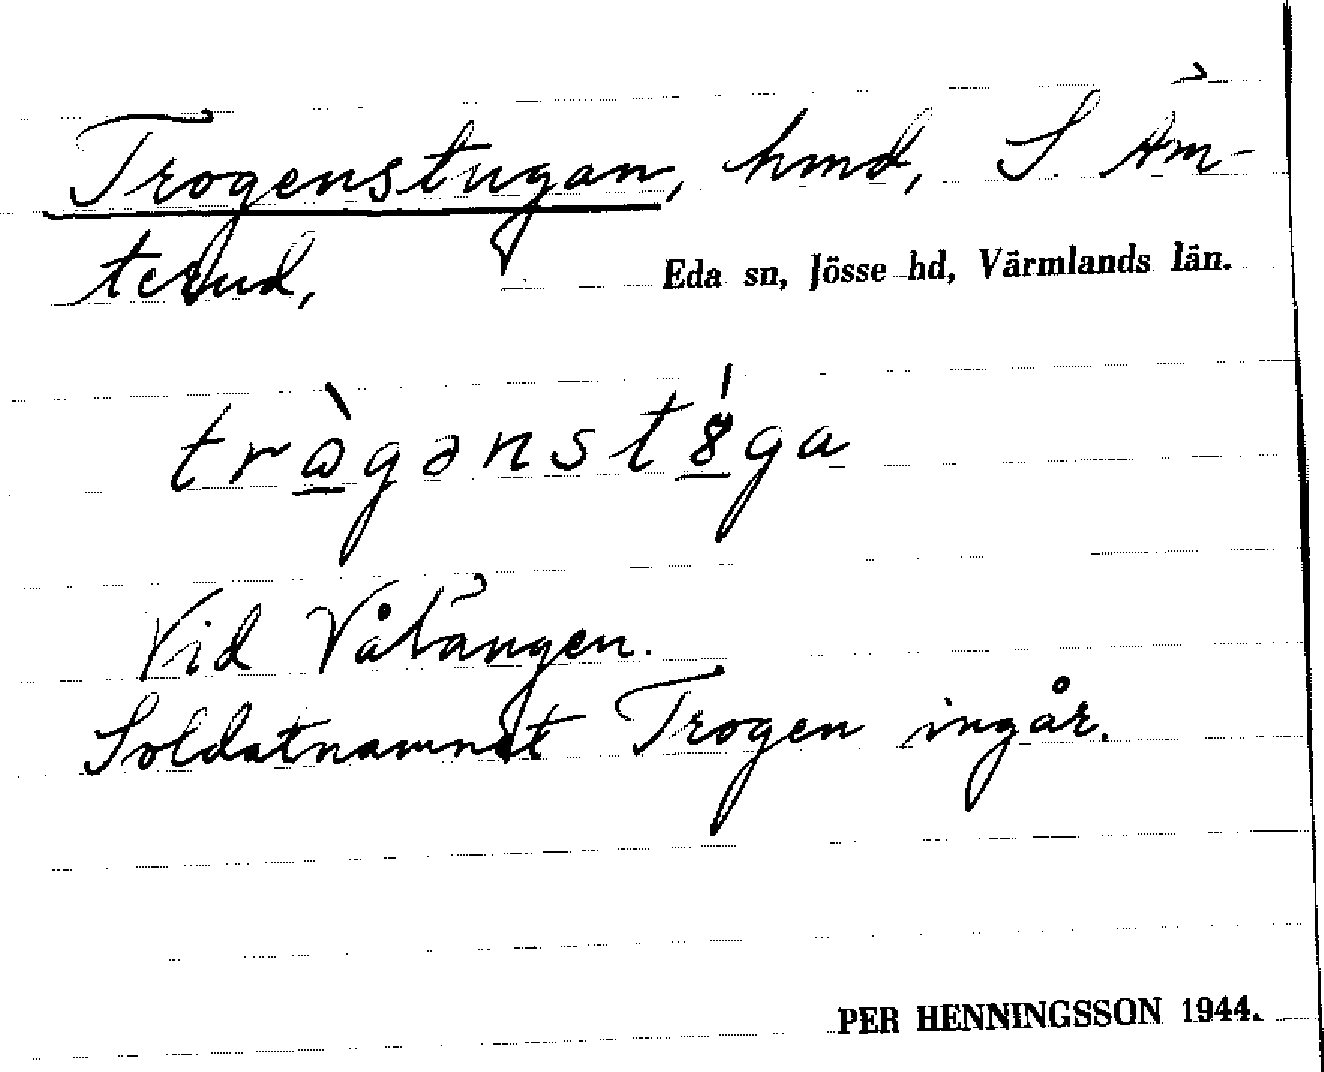 Trogenstugan, hmd, S. Äm-
terud,
Eda sn, Jösse hd, Värmlands län.
tràgənst8́ga
Vid Vålängen.
Soldatnamnet Trogen ingår.
PER HENNINGSSON 1944.